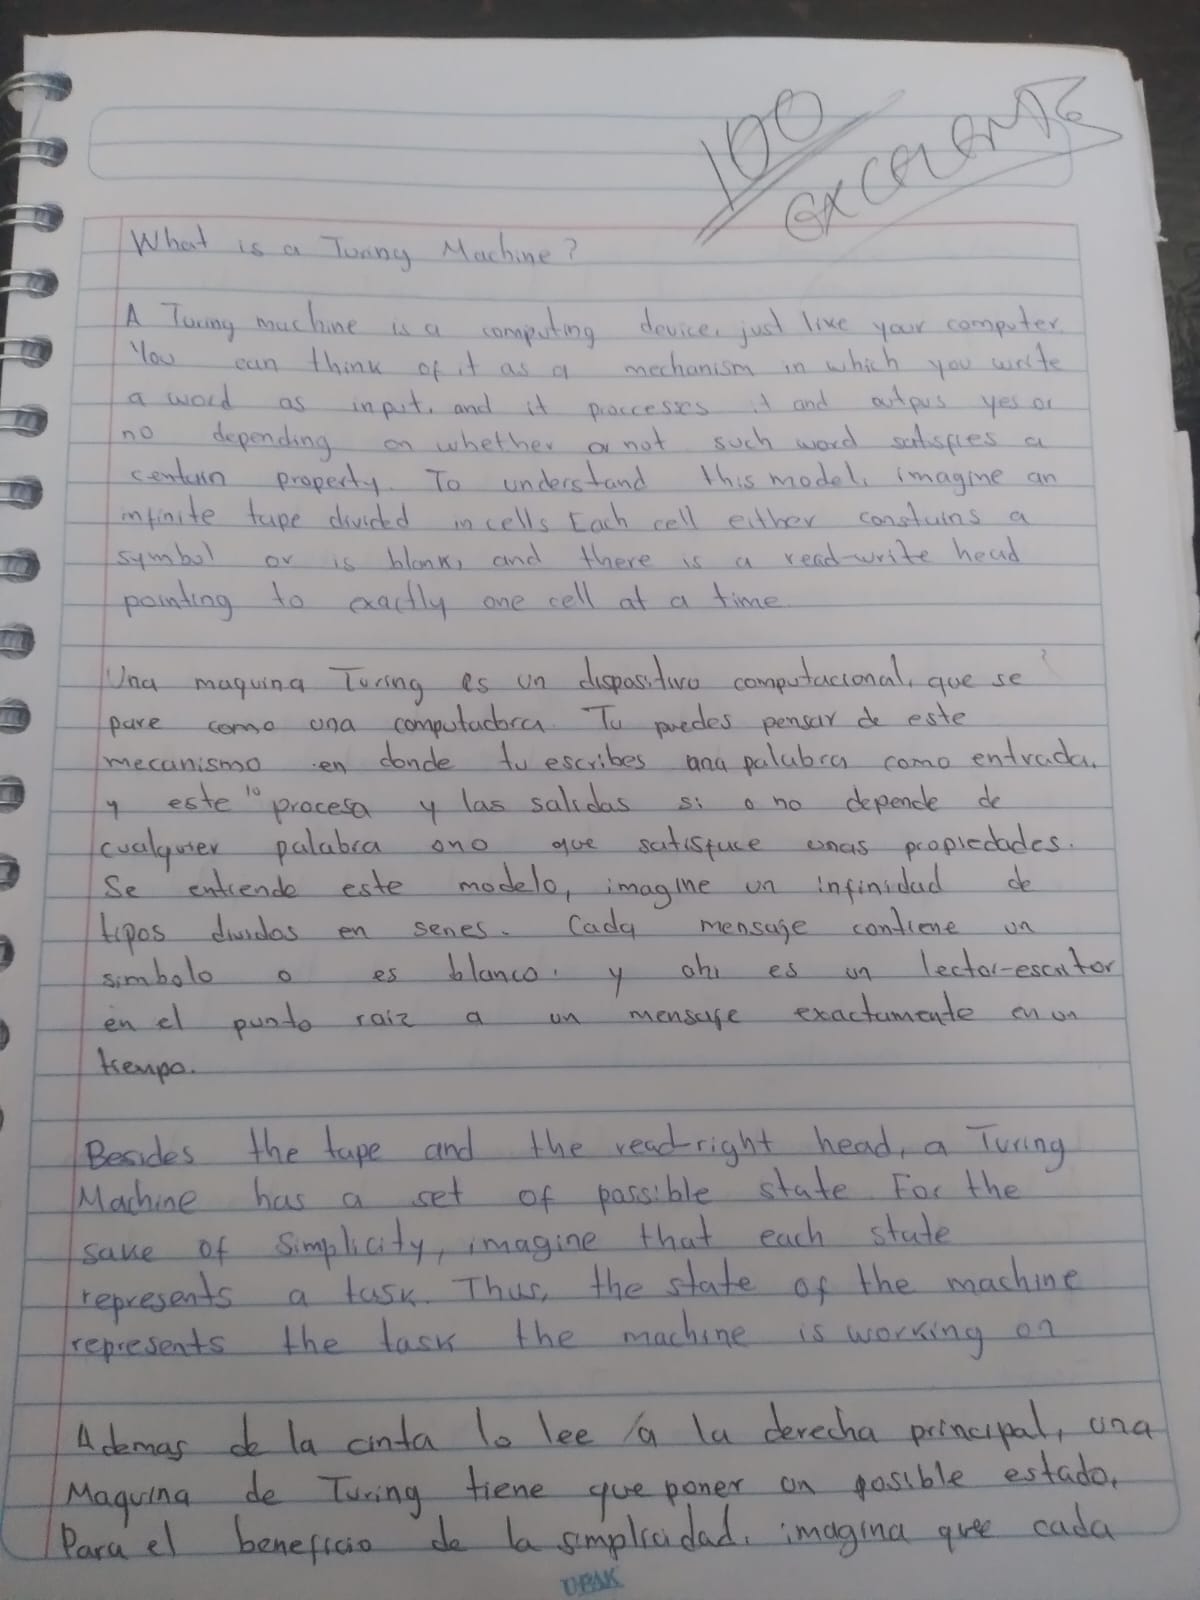 100
excelente
What is a Turing Machine?
A Turing machine is a computing device, just like your computer.
You can think of it as a mechanism in which you write
a word as input, and it proccesses it and outpus yes or
no depending on whether or not such word satisfies a
centain property. To understand this model, imagine an
infinite tape divided in cells Each cell either constains a
symbol or is blank, and there is a read-write head
pointing to exactly one cell at a time.
Una maquina Turing es un dispositivo computacional, que se
pare como una computadora. Tu puedes pensar de este
mecanismo en donde tu escribes una palabra como entrada,
y este lo procesa y las salidas si o no depende de
cualquier palabra ono que satisface unas propiedades.
Se entiende este modelo, imagine un infinidad de
tipos dividos en senes. Cada mensaje contiene un
simbolo o es blanco, y ahi es un lector-escritor
en el punto raiz a un mensaje exactamente en un
tiempo.
Besides the tape and the read-right head, a Turing
Machine has a set of possible state. For the
sake of simplicity, imagine that each state
represents a task. Thus, the state of the machine
represents the task the machine is working on
Ademas de la cinta lo lee /a la derecha principal, una
Maquina de Turing tiene que poner un posible estado,
Para el beneficio de la simplicidad, imagina que cada